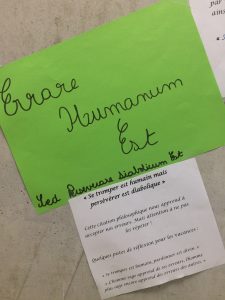 Errare
Humanum
Est
Sed Perseverare diabolicum Est
« Se tromper est humain mais
persévérer est diabolique »
Cette citation philosophique nous apprend à
accepter nos erreurs. Mais attention à ne pas
les répéter !
Quelques pistes de réflexion pour les vacances :
« Se tromper est humain, pardonner est divin. »
« L'homme sage apprend de ses erreurs, l'homme
plus sage encore apprend des erreurs des autres. »
par